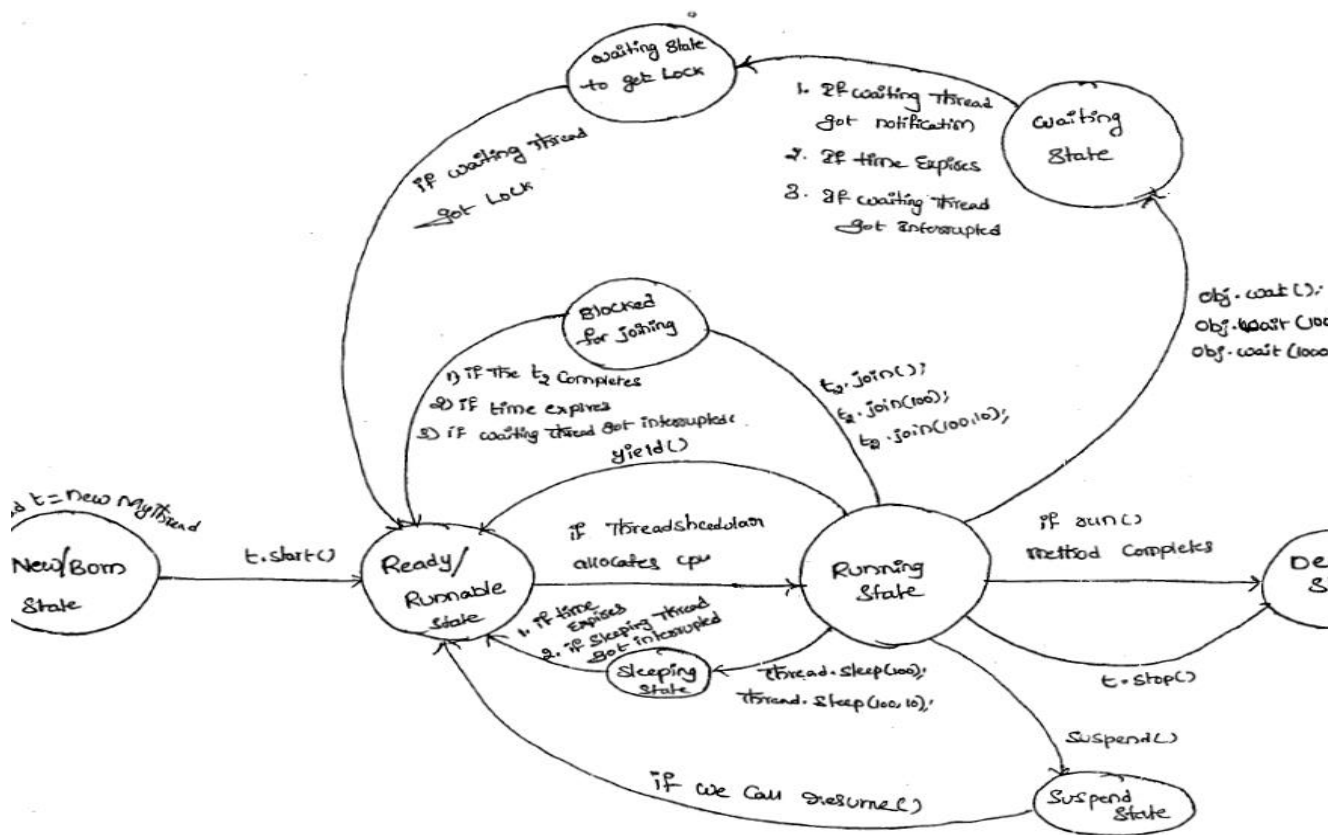 Waiting State
to get Lock
1. If waiting Thread
got notification
2. If time Expires
3. If waiting Thread
got interrupted
Waiting
State
if waiting Thread
got Lock
Obj.wait();
Obj.wait(100
Obj.wait(1000
Blocked
for joining
1) if the t2 Completes
2) if time expires
3) if waiting Thread got interrupted
t2.join();
t2.join(100);
t2.join(100,10);
yield()
t=new MyThread
New/Born
State
t.start()
Ready/
Runnable
State
if Threadshedular
allocates cpu
Running
State
if run()
method Completes
De
S
1. if time
Expires
2. if Sleeping Thread
got interrupted
Sleeping
State
Thread.sleep(100);
Thread.sleep(100,10);
t.stop()
suspend()
if we call resume()
Suspend State